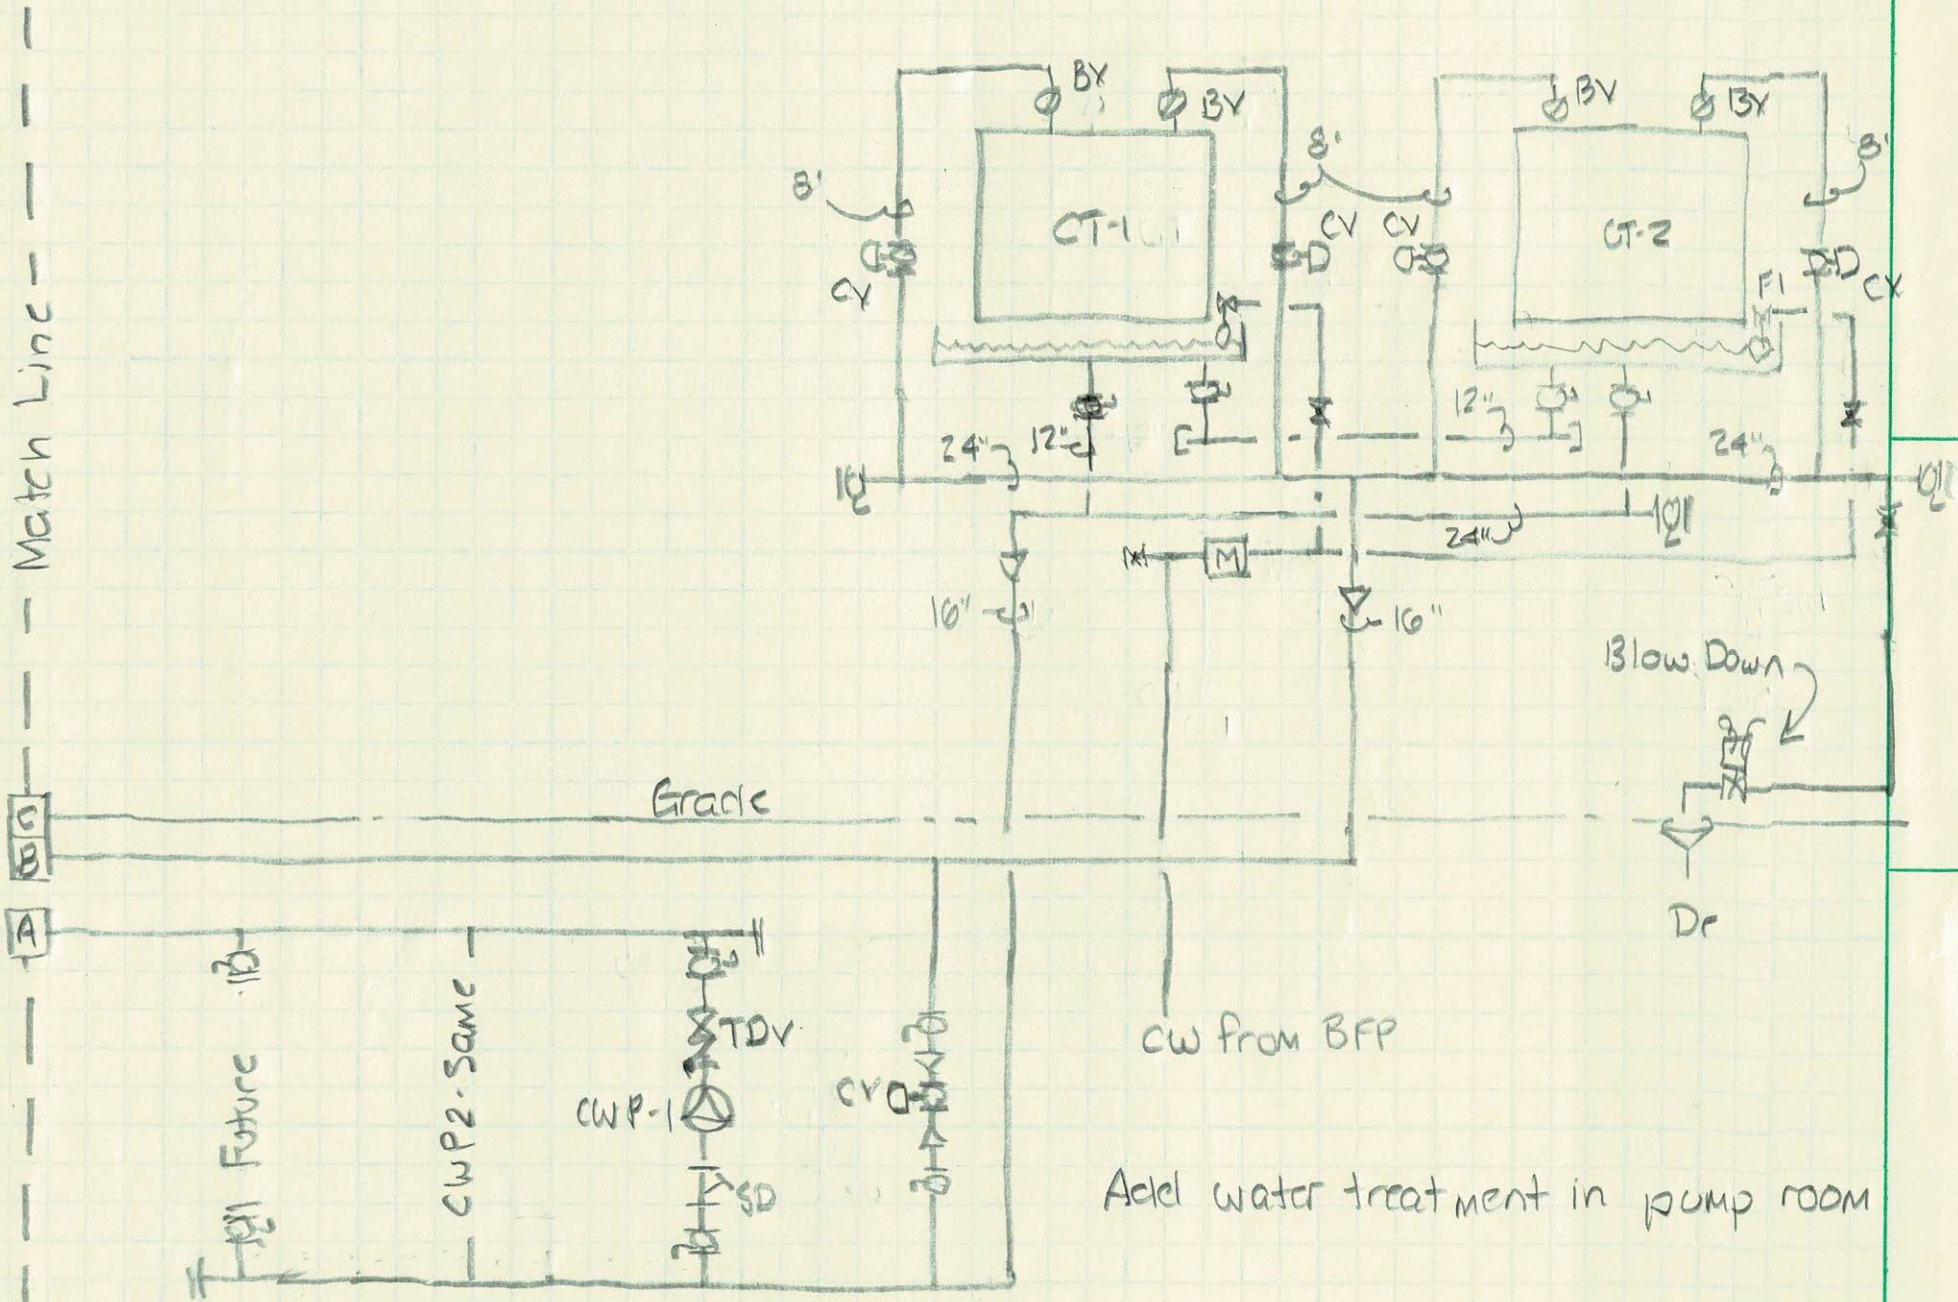 BV
BV
BV
BV
8'
8'
8'
CT-1
CV
CV
CT-2
CV
CV
F1
24"
12"
12"
24"
24"
M
16"
16"
Match Line
Blow Down
Grade
C
B
A
Dr
Future
CWP2-Same
TDV
CWP-1
SD
CV
CW from BFP
Add water treatment in pump room